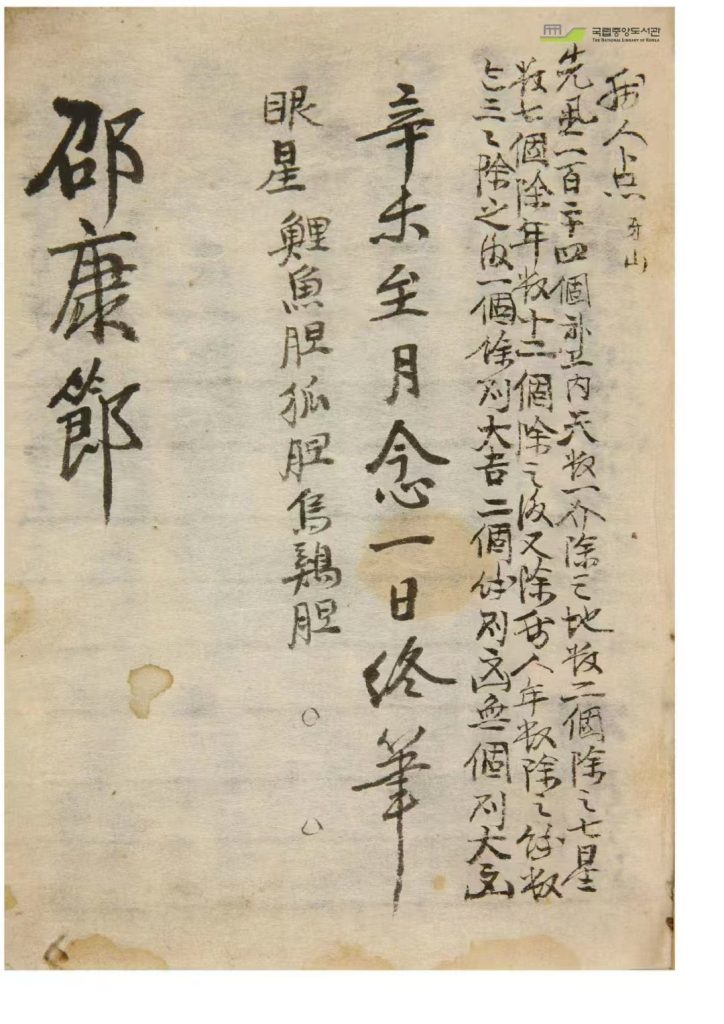 국립중앙도서관
THE NATIONAL LIBRARY OF KOREA
病人点 牙山
先置二百四個内天数一介除之地数二個除之七星
数七個除年数十二個除之後又除病人年数除之餘数
三〻除之後一個餘則大吉二個餘則凶無個則大凶
辛未至月念一日終筆
眼星 鯉魚胆狐胆烏鷄胆
邵康節